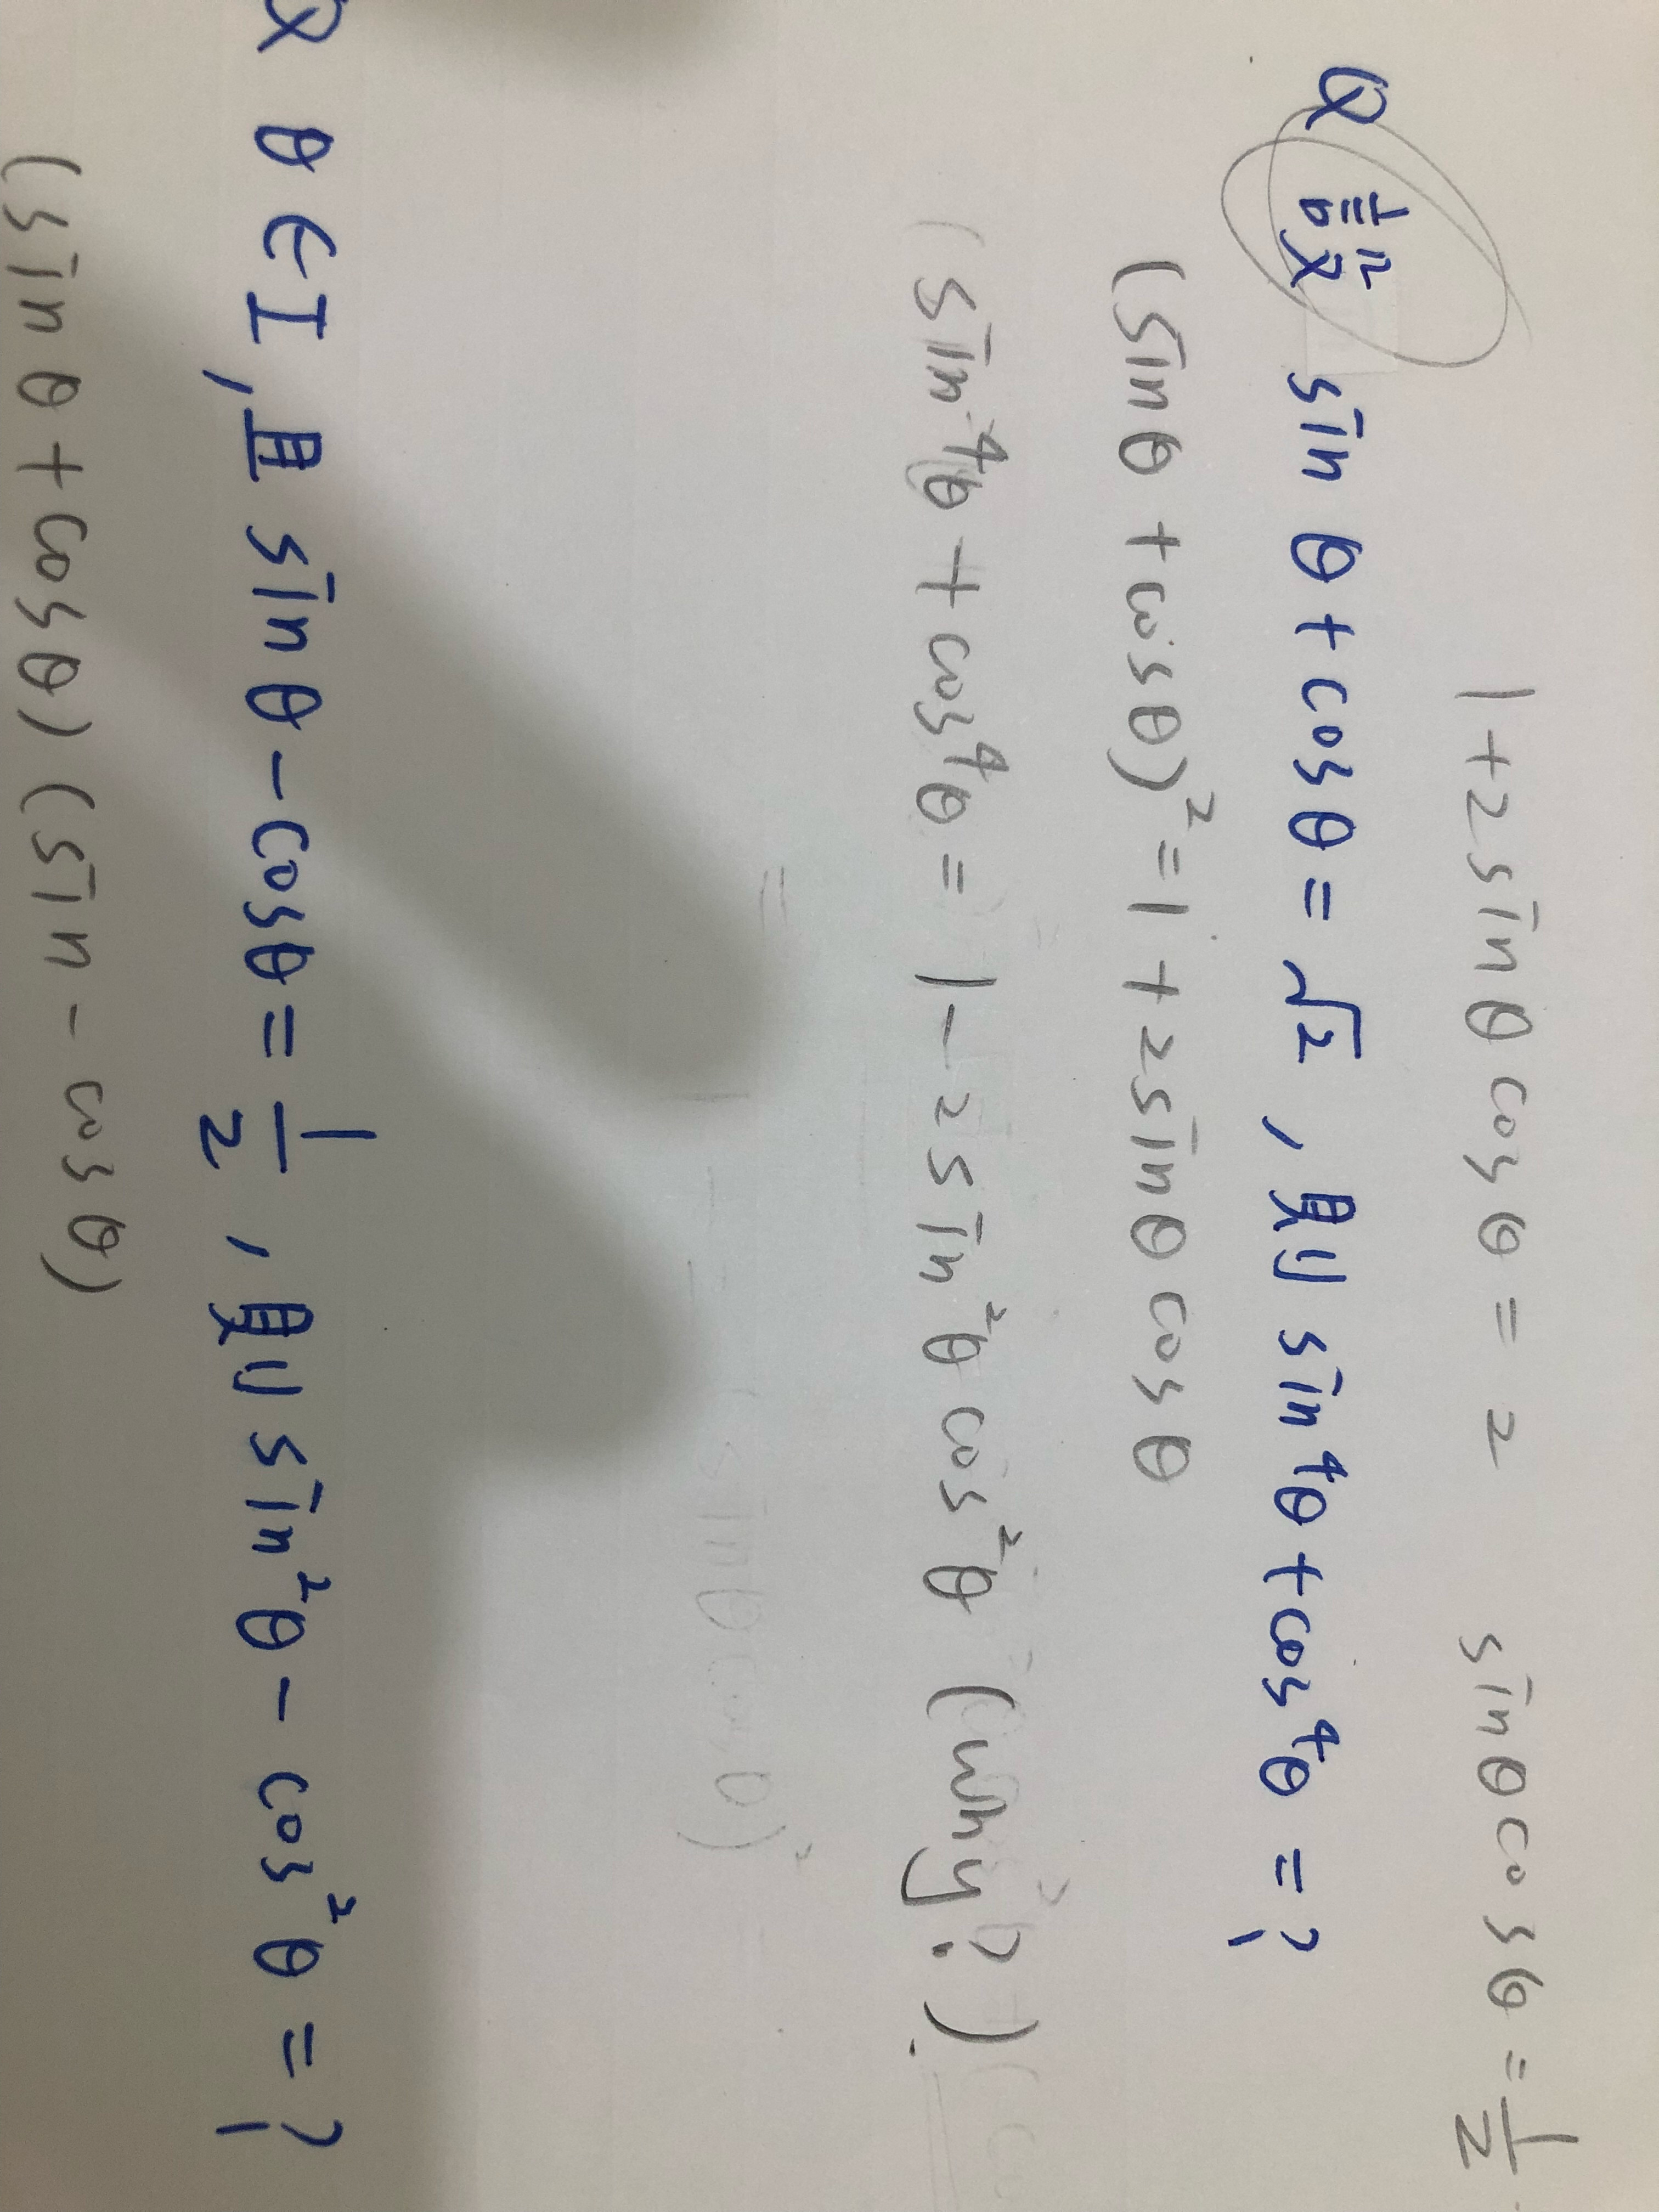 1+2sinθcosθ=2 sinθcosθ=1/2
Q 設 sinθ+cosθ=√2,則sin⁴θ+cos⁴θ=?
(sinθ+cosθ)²=1+2sinθcosθ
(sin⁴θ+cos⁴θ=1-2sin²θcos²θ (why?)
Q θ∈I,且sinθ-cosθ=1/2,則sin²θ-cos²θ=?
(sinθ+cosθ)(sin-cosθ)